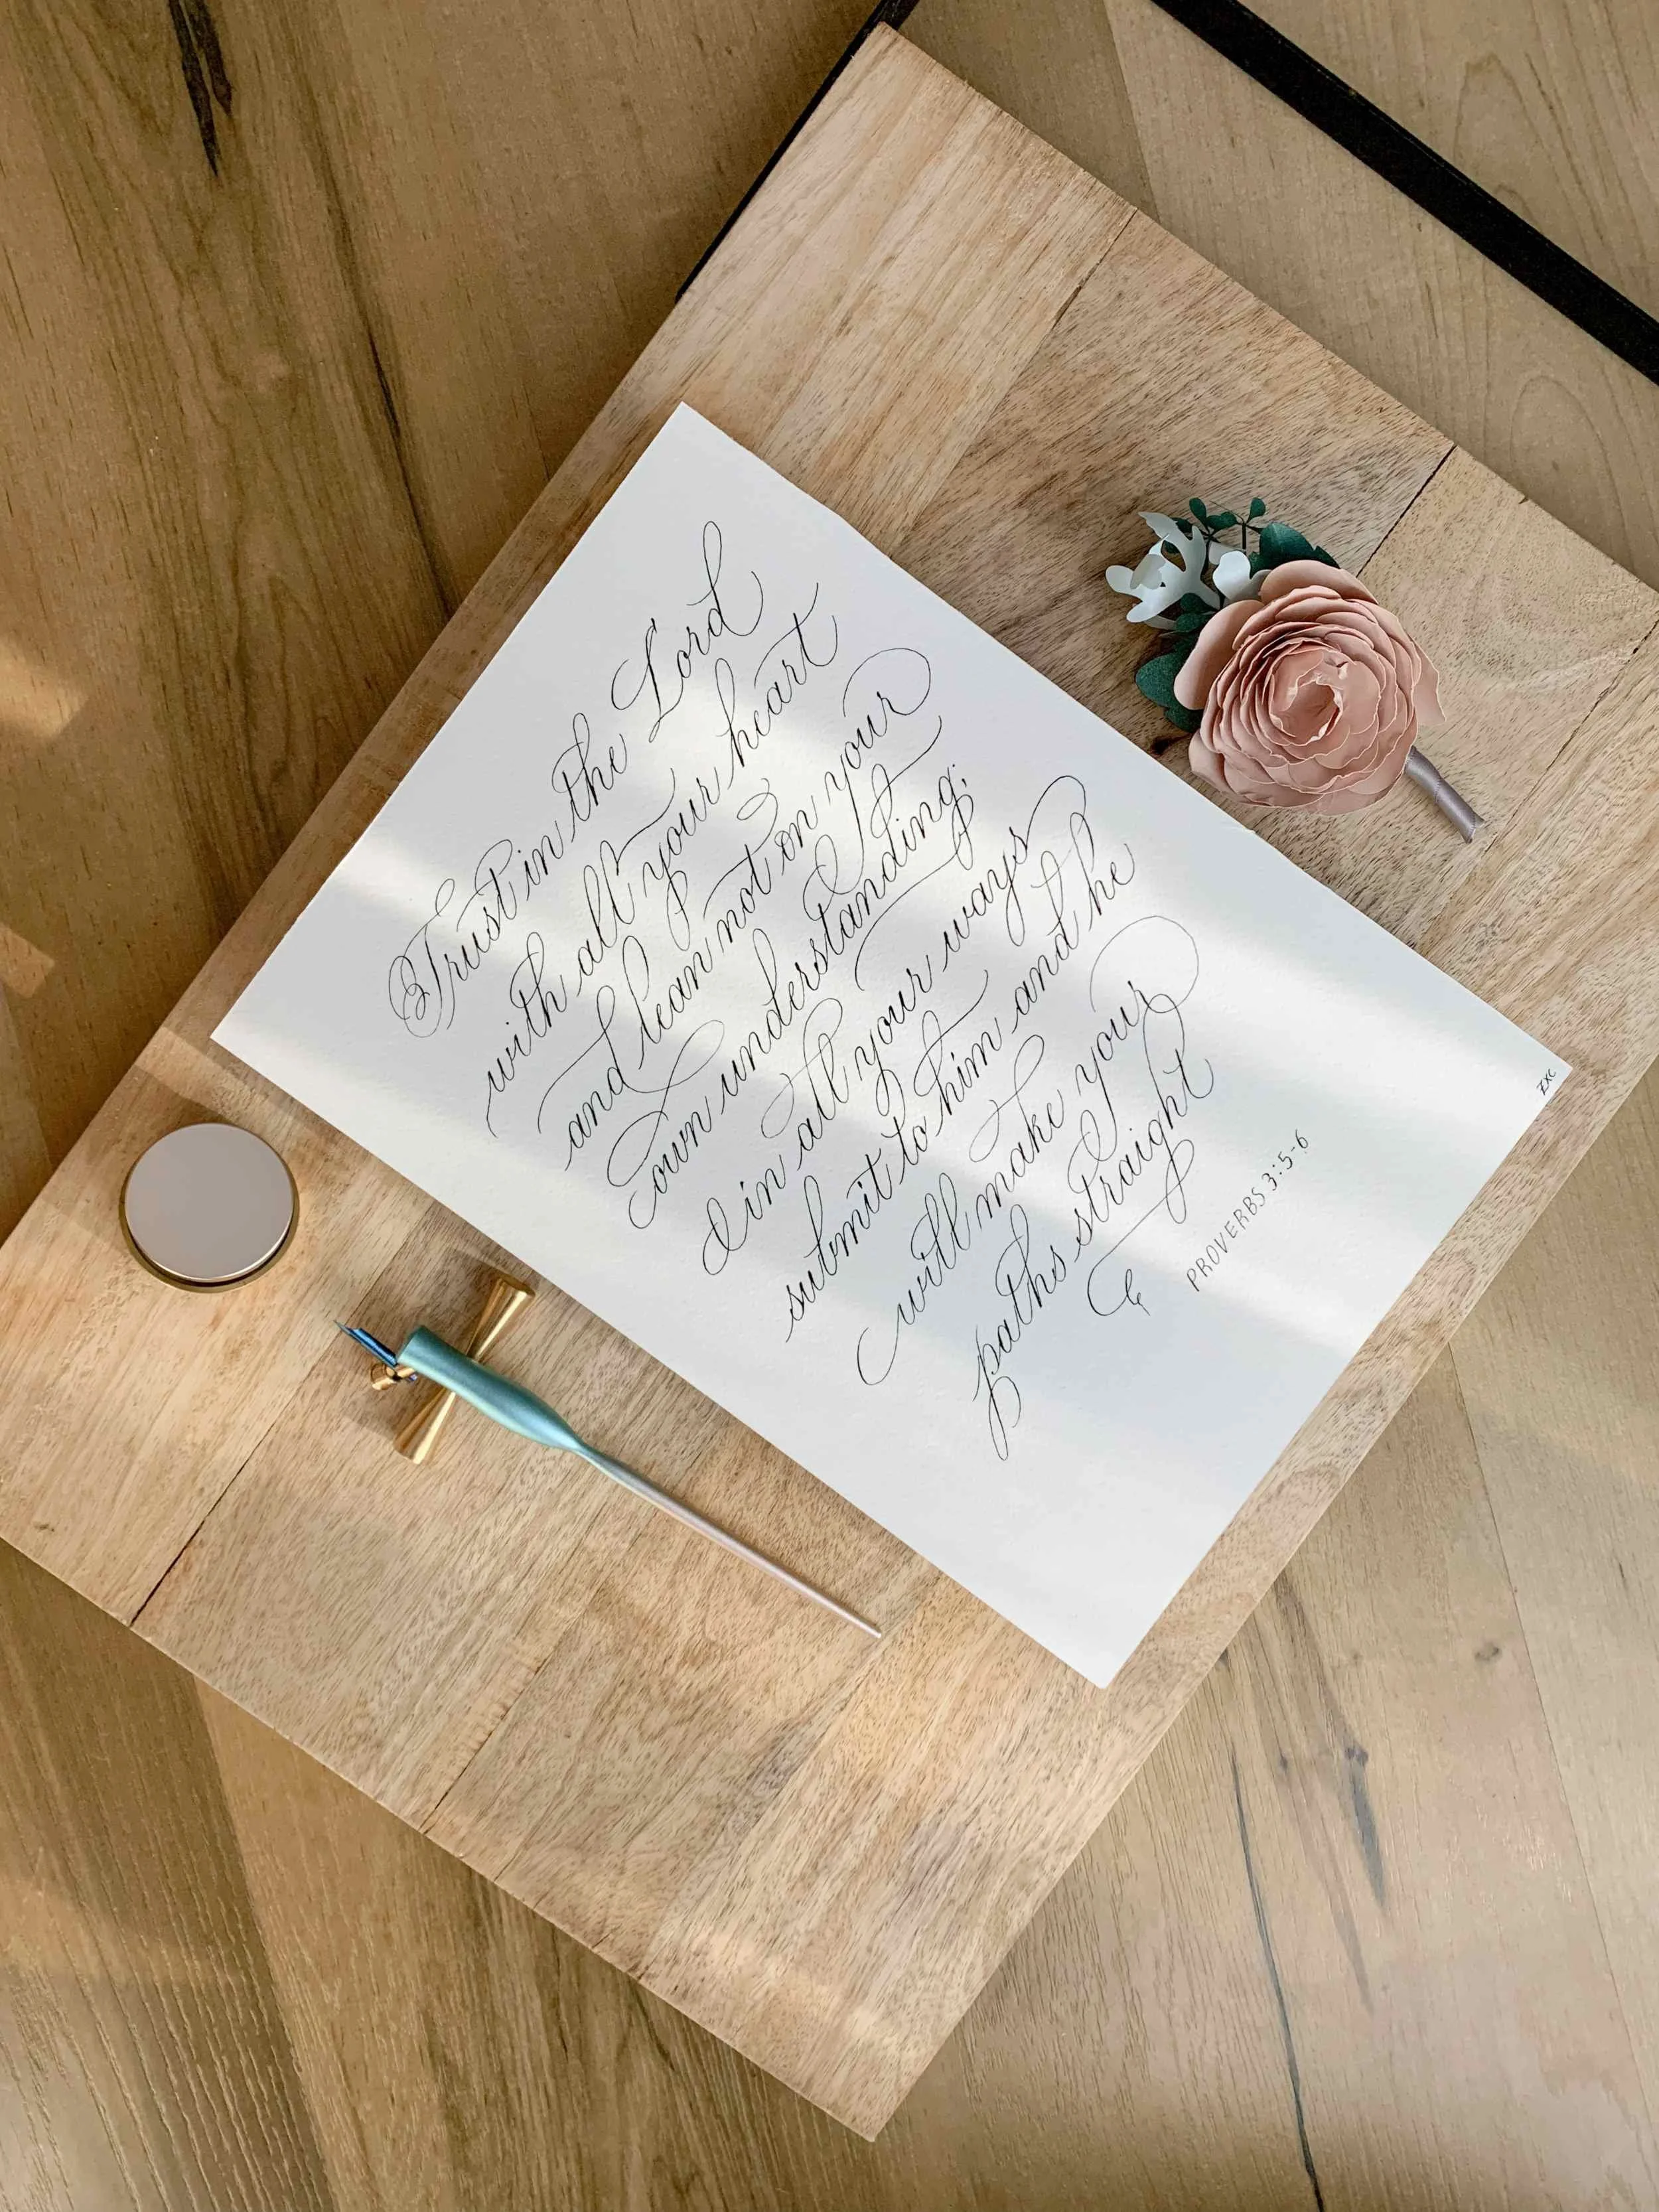 Trust in the Lord
with all your heart
and lean not on your
own understanding;
in all your ways
submit to him and he
will make your
paths straight
PROVERBS 3:5-6
EXC